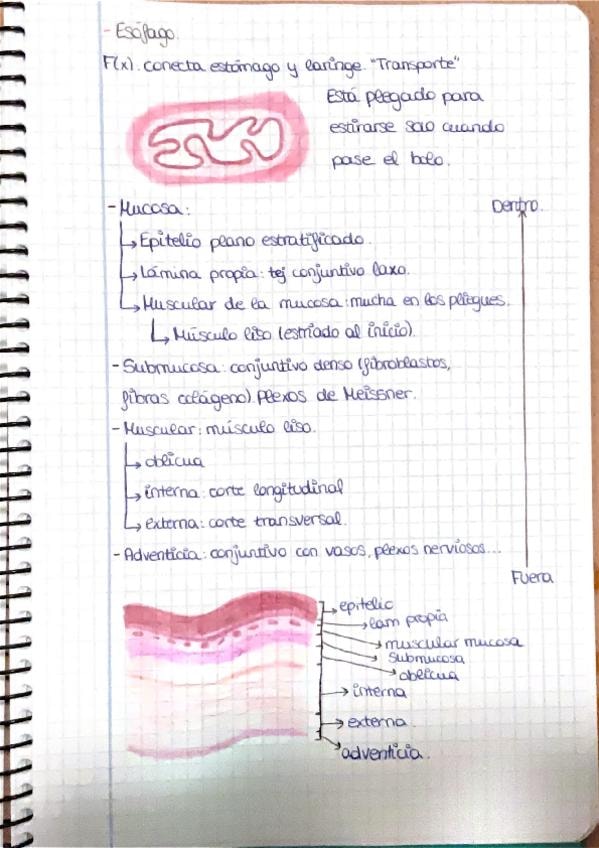 - Esófago.
F(x). conecta estómago y laringe. "Transporte"
Está plegado para
estirarse solo cuando
pase el bolo.
- Mucosa:
Dentro.
↳ Epitelio plano estratificado.
↳ Lámina propia: tej conjuntivo laxo.
↳ Muscular de la mucosa: mucha en los pliegues.
↳ Músculo liso (estriado al inicio).
- Submucosa: conjuntivo denso (fibroblastos,
fibras colágeno). Plexos de Meissner.
- Muscular: músculo liso.
↳ oblicua
↳ interna: corte longitudinal
↳ externa: corte transversal.
- Adventicia: conjuntivo con vasos, plexos nerviosos...
Fuera
epitelio
lam propia
muscular mucosa
submucosa
oblicua
interna
externa
adventicia.